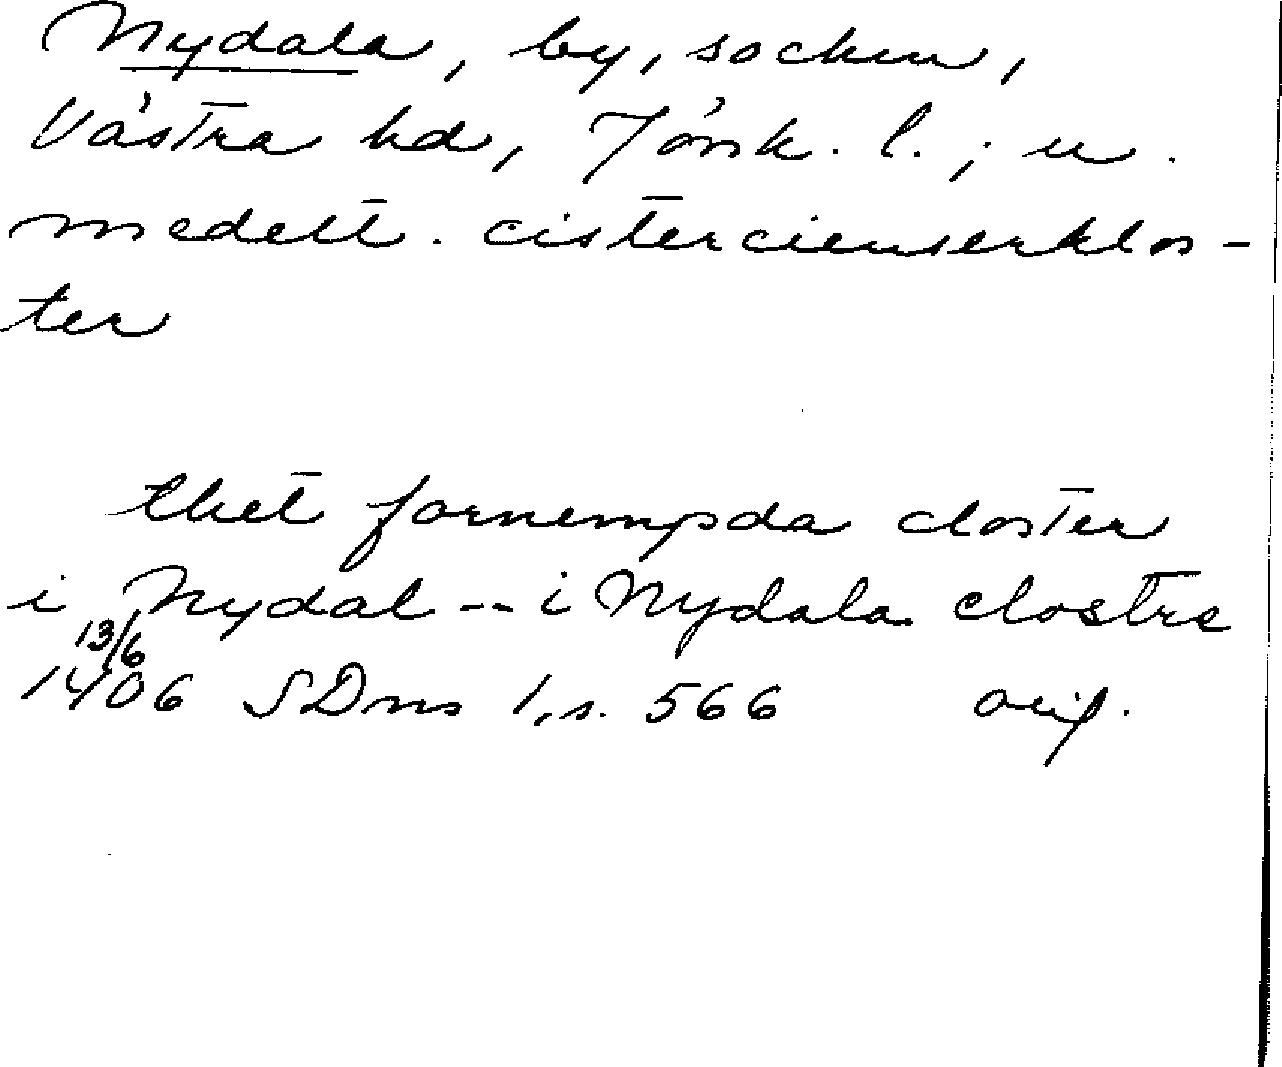 Nydala, by, socken,
Västra hd, Jönk. l.; u.
medelt. cistercienserklos-
ter
thet fornempda closter
i Nydal -- i Nydala clostre
13/6
1406 SDns 1, s. 566 orig.